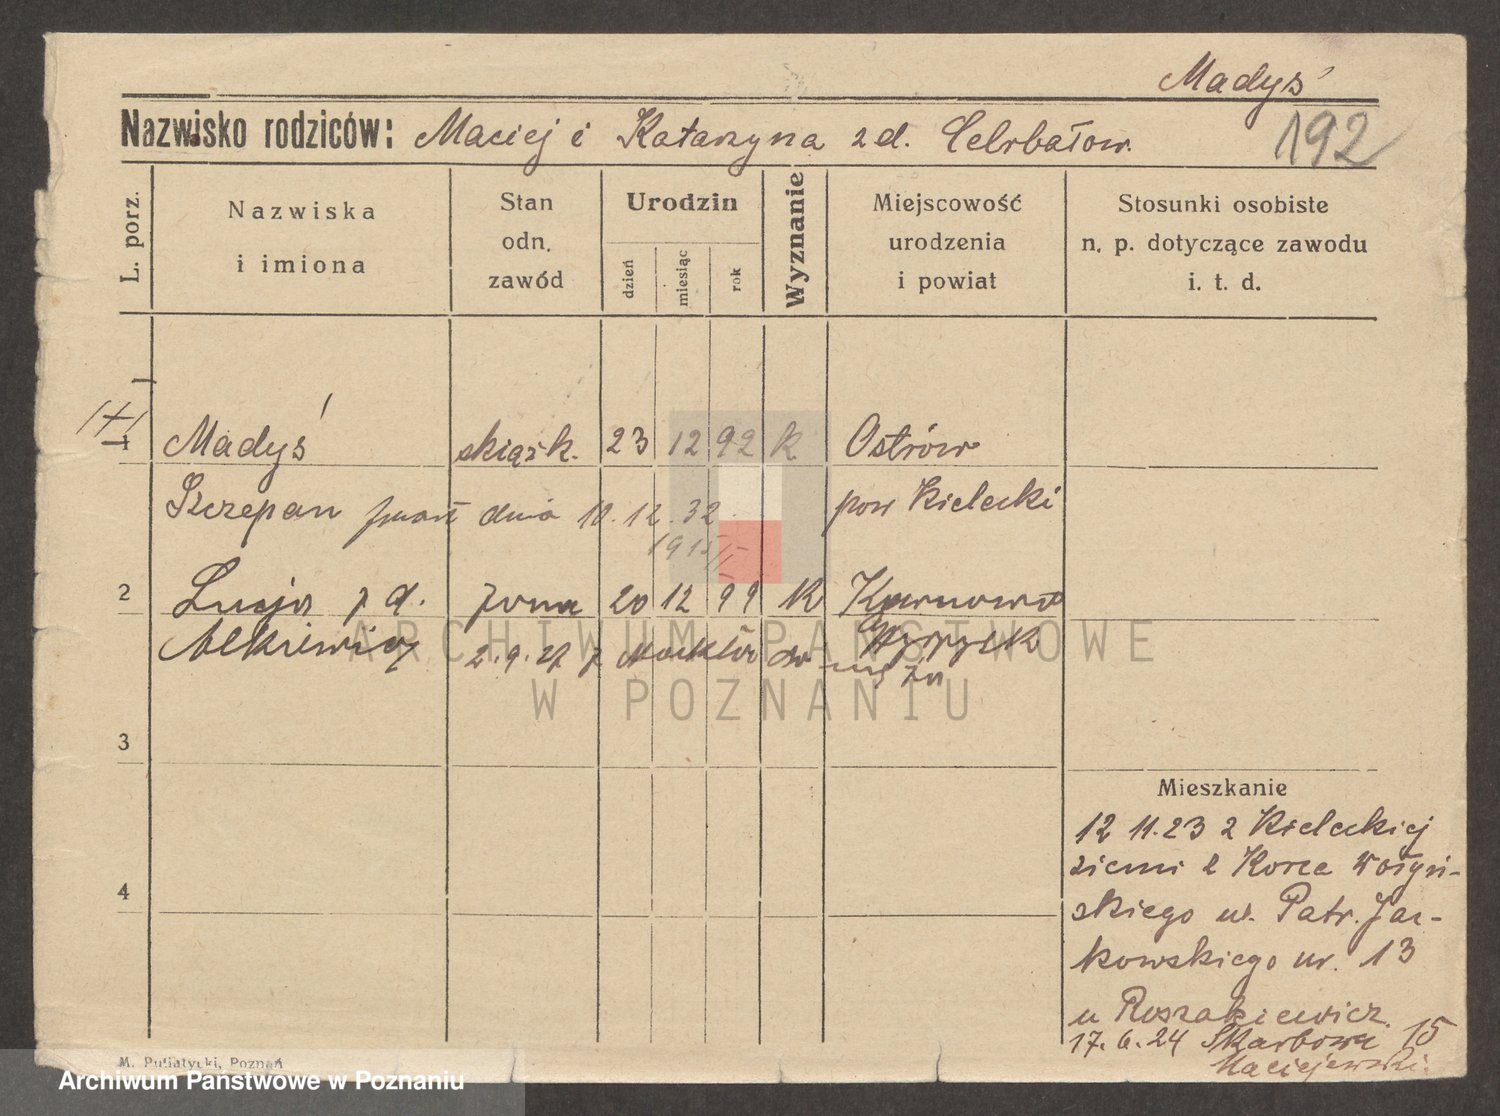 Madyś
Nazwisko rodziców: Maciej i Katarzyna z d. Celrbałow.
192
L. porz.
Nazwiska
i imiona
Stan
odn.
zawód
Urodzin
dzień
miesiąc
rok
Wyznanie
Miejscowość
urodzenia
i powiat
Stosunki osobiste
n. p. dotyczące zawodu
i. t. d.
1 Madyś 23 12 92 k. Ostrów
Szczepan zmarł dnia 10.12.32 pow Kielecki
1915/I
2 Lucja z d. żona 20 12 99 k
2.9.27 z
3
4
Mieszkanie
12 11.23 z Kieleckiej
ziemi z Korca Wołyń-
skiego ul. Patr. Jac-
kowskiego nr. 13
u Roszakiewicz.
17.6.24 Skarbowa 15
Maciejewski.
M. Putiatycki, Poznań
ARCHIWUM PAŃSTWOWE
W POZNANIU
Archiwum Państwowe w Poznaniu